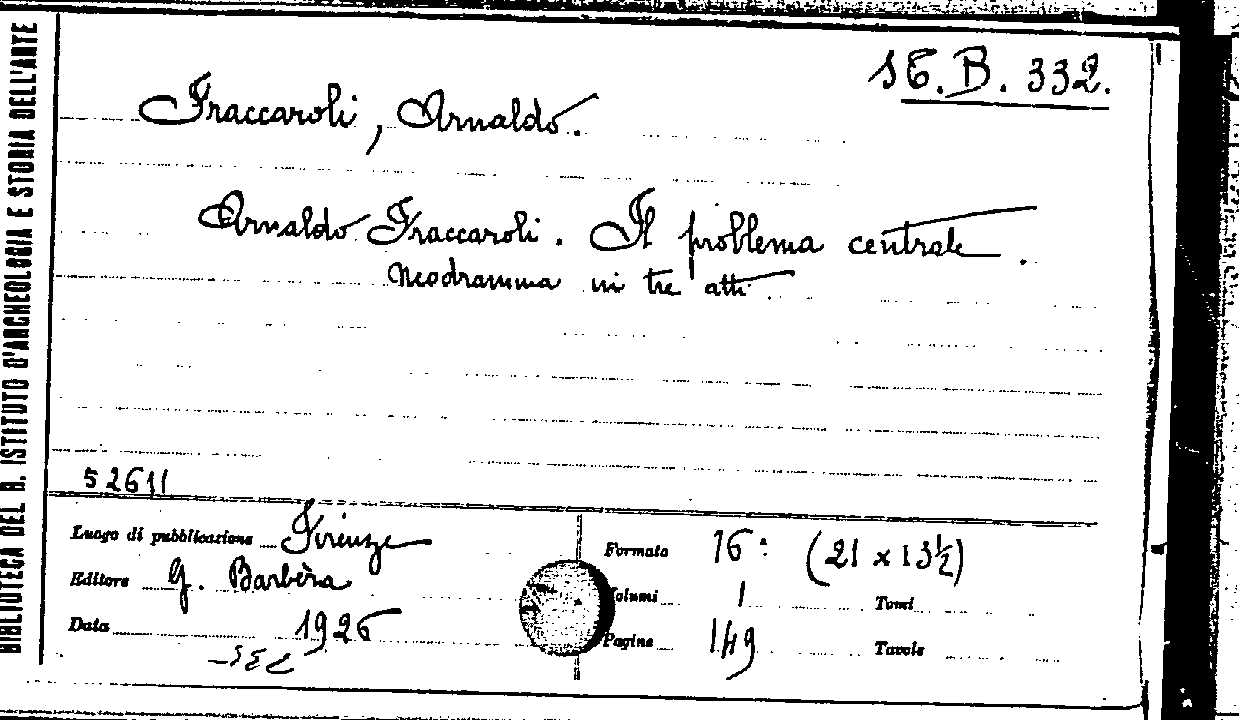 BIBLIOTECA DEL R. ISTITUTO D'ARCHEOLOGIA E STORIA DELL'ARTE
SE.B. 332.
Fraccaroli, Arnaldo.
Arnaldo Fraccaroli. Il problema centrale.
Neodramma in tre atti
52611
Luogo di pubblicazione Firenze
Editore G. Barbèra
Data 1926
Formato 16° (21 x 13½)
Volumi 1 Tomi
Pagine 149 Tavole